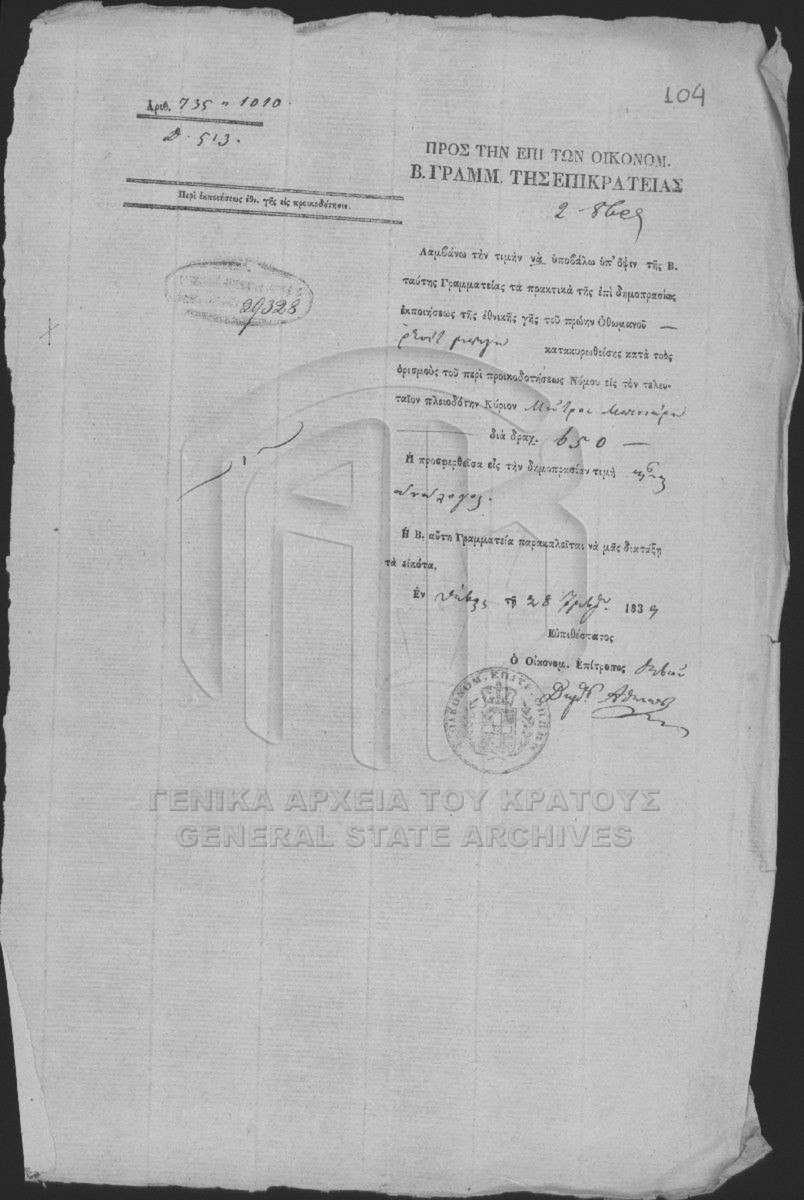 104
Αριθ. 735 " 1010.
Δ. 513.
ΠΡΟΣ ΤΗΝ ΕΠΙ ΤΩΝ ΟΙΚΟΝΟΜ.
Β. ΓΡΑΜΜ. ΤΗΣ ΕΠΙΚΡΑΤΕΙΑΣ
Περὶ ἐκποιήσεως ἐθν. γῆς εἰς προικοδότησιν.
2 8βρ
29328
Λαμβάνω τὴν τιμὴν νὰ ὑποβάλω ὑπ' ὄψιν τῆς Β.
ταύτης Γραμματείας τὰ πρακτικὰ τῆς ἐπὶ δημοπρασίας
ἐκποιήσεως τῆς ἐθνικῆς γῆς τοῦ πρώην Ὀθωμανοῦ —
κατακυρωθείσης κατὰ τοὺς
ὁρισμοὺς τοῦ περὶ προικοδοτήσεως Νόμου εἰς τὸν τελευ-
ταῖον πλειοδότην Κύριον
διὰ δραχ. 650 —
Η προσφερθεῖσα εἰς τὴν δημοπρασίαν τιμὴ εἶναι
ἀνάλογος.
Η Β. αὕτη Γραμματεία παρακαλεῖται νὰ μᾶς διατάξῃ
τὰ εἰκότα.
Εν Θήβαις τῇ 28 7μβρ. 1839
Εὐπιθέστατος
Ο Οἰκονομ. Επίτροπος Θηβῶν
ΟΙΚΟΝΟΜ. ΕΠΙΤΡ. ΘΗΒΩΝ
ΓΕΝΙΚΑ ΑΡΧΕΙΑ ΤΟΥ ΚΡΑΤΟΥΣ
GENERAL STATE ARCHIVES